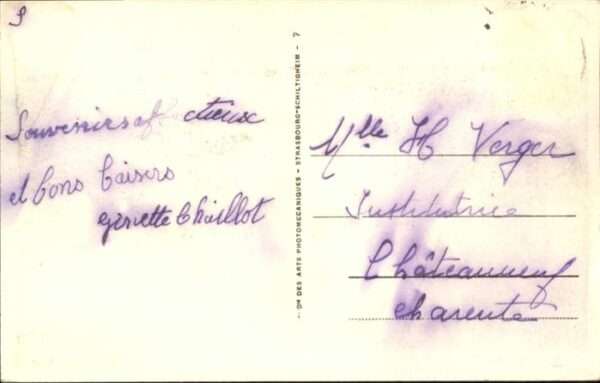 Souvenirs affectueux
et bons baisers
Ginette Chaillot
- Dm DES ARTS PHOTOMECANIQUES - STRASBOURG-SCHILTIGHEIM - 7
Mlle H Verger
Institutrice
Châteauneuf
Charente